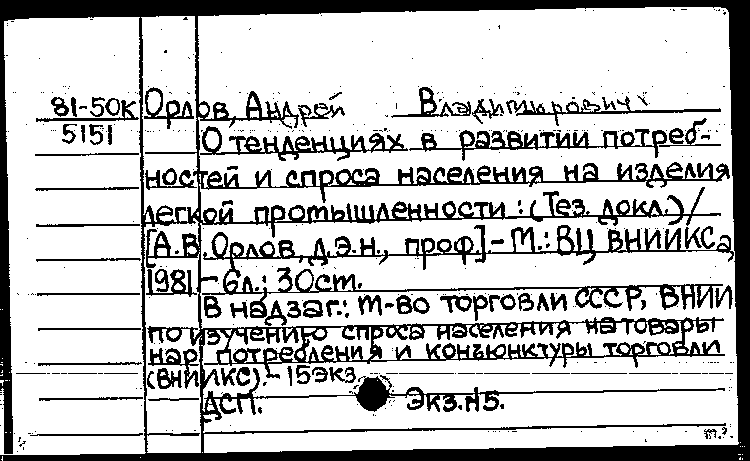 81-50к Орлов, Андрей Владимирович
5151 О тенденциях в развитии потреб-
ностей и спроса населения на изделия
легкой промышленности : (Тез. докл.) /
[А.В. Орлов, д.э.н., проф.]. - М.: ВЦ ВНИИКС,
1981. - 6л.; 30см.
В надзаг.: М-во торговли СССР, ВНИИ
по изучению спроса населения на товары
нар. потребления и конъюнктуры торговли
(ВНИИКС). - 15экз
ДСП. Экз. №5.